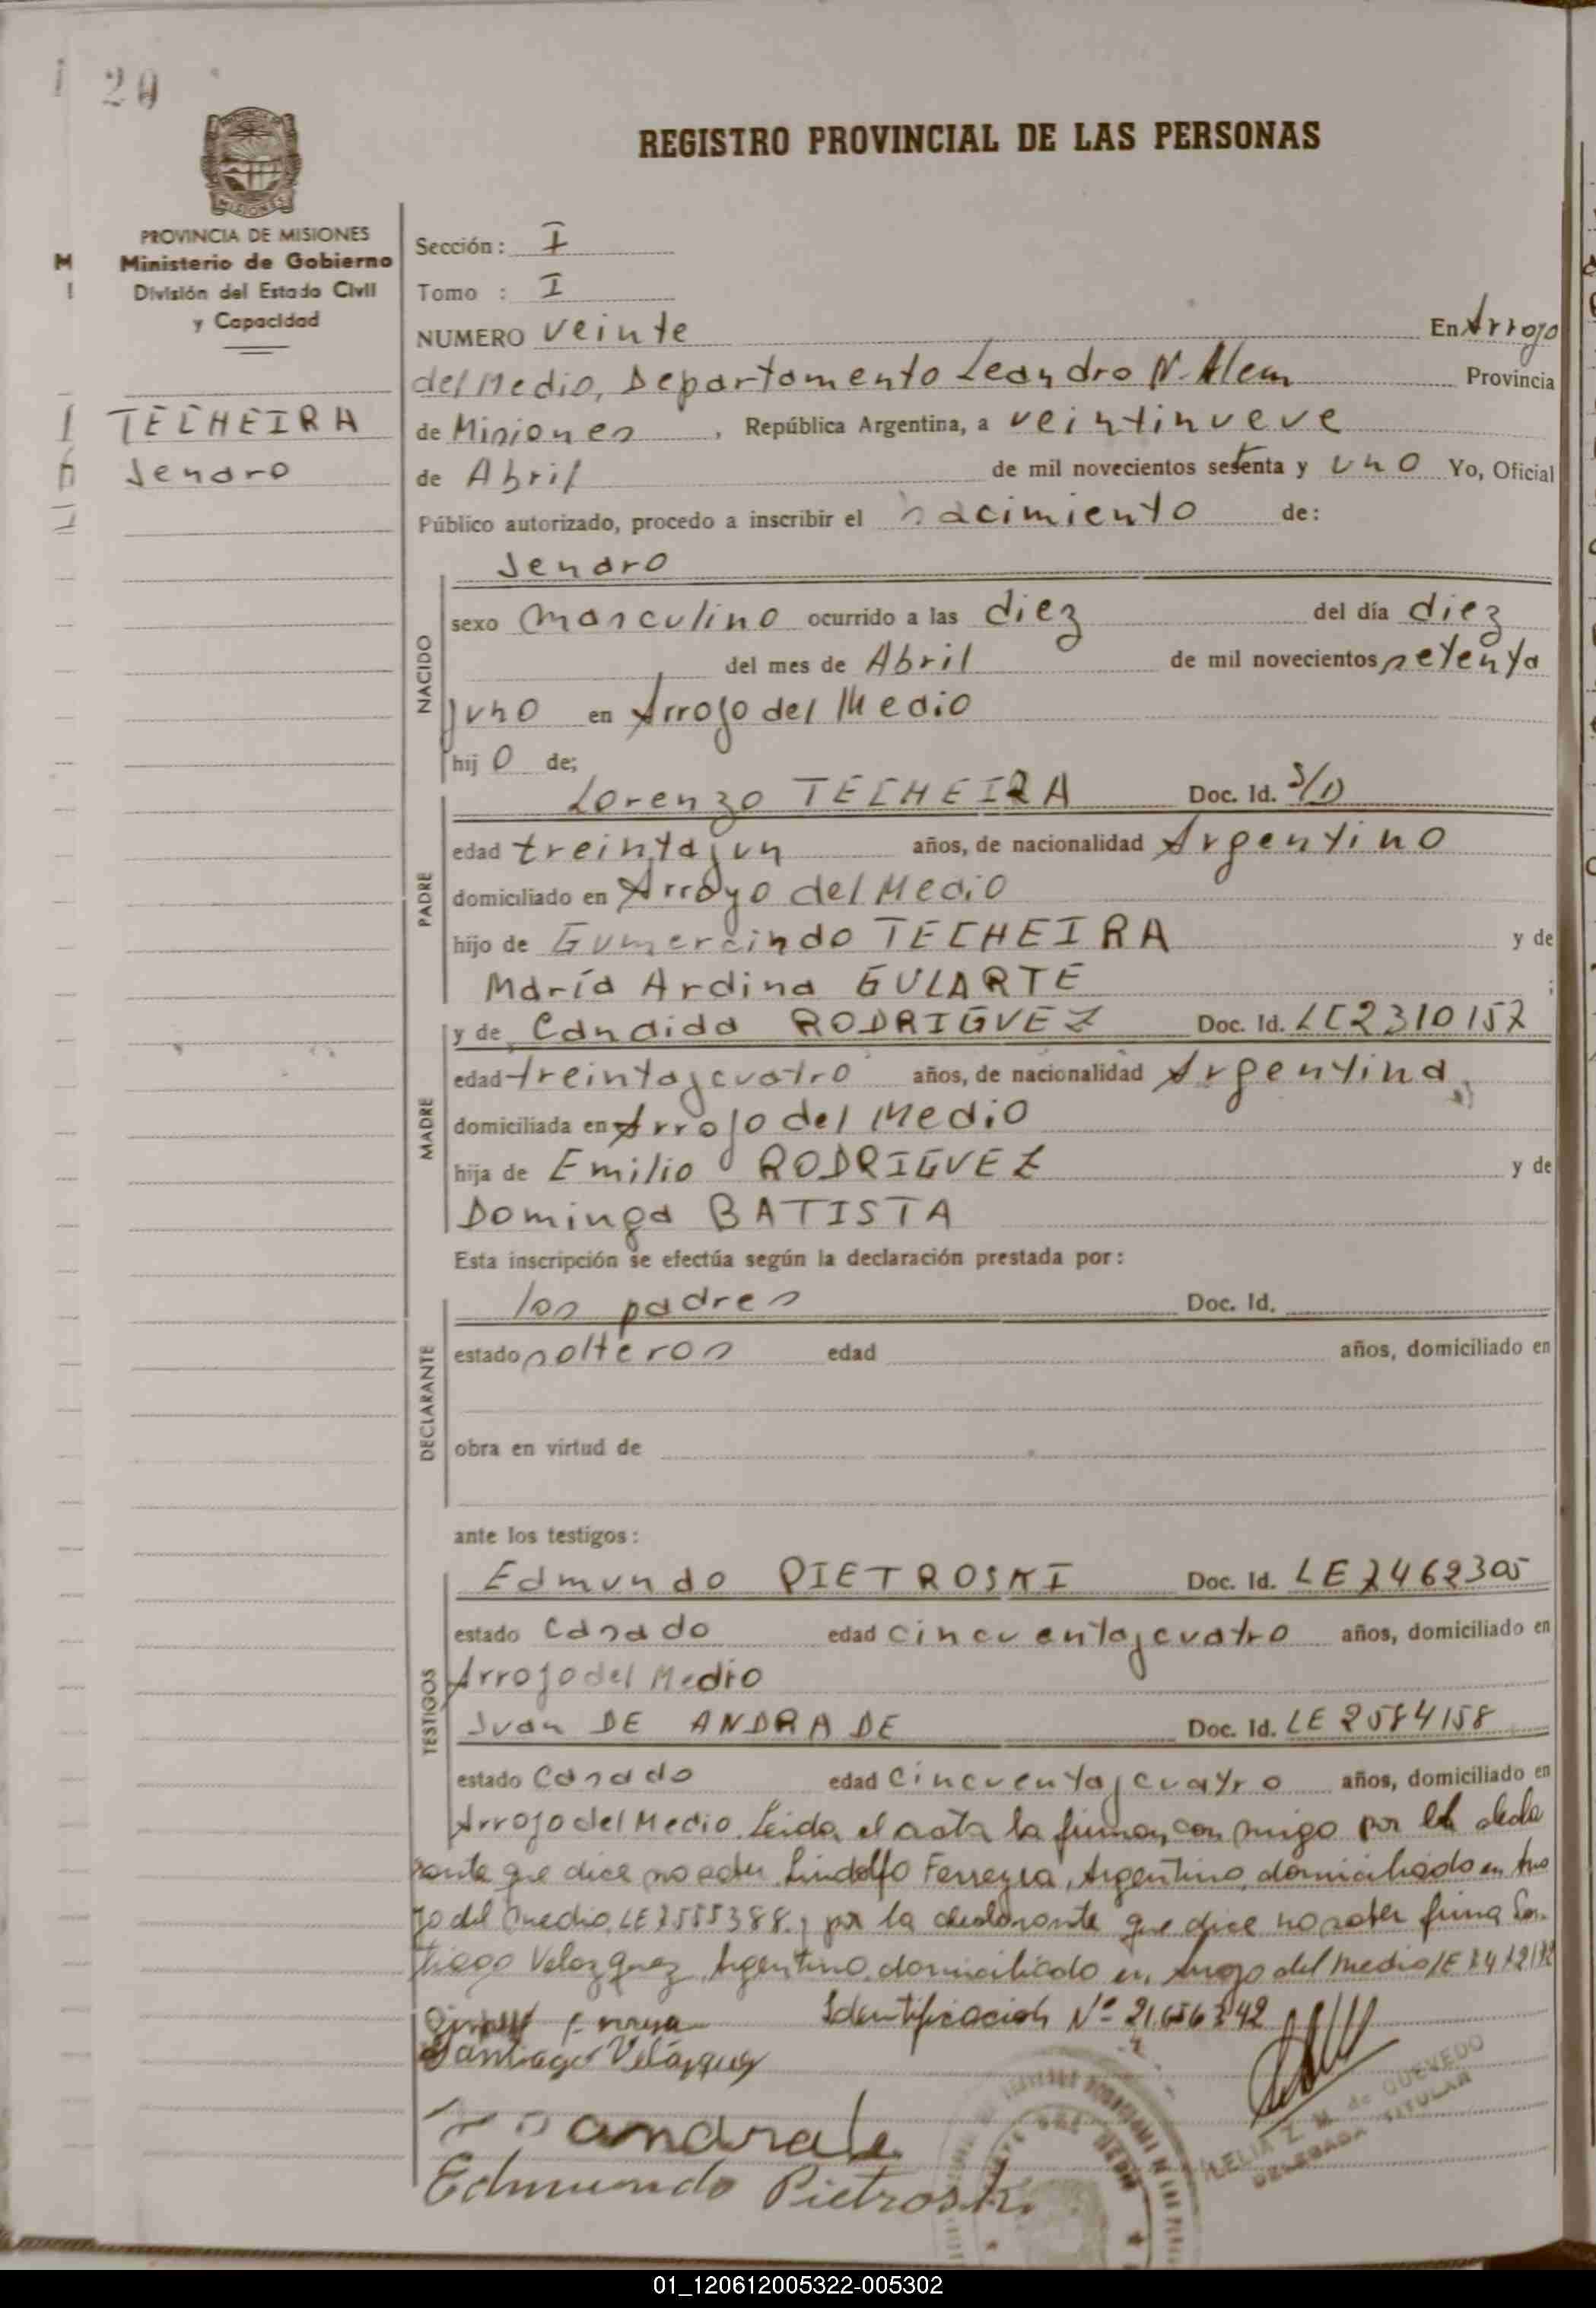 20
REGISTRO PROVINCIAL DE LAS PERSONAS
MISIONES
PROVINCIA DE MISIONES
Ministerio de Gobierno
División del Estado Civil
y Capacidad
TECHEIRA
Jenaro
Sección: I
Tomo : I
NUMERO veinte En Arroyo
del Medio, Departamento Leandro N. Alem Provincia
de Misiones, República Argentina, a veintinueve
de Abril de mil novecientos setenta y uno Yo, Oficial
Público autorizado, procedo a inscribir el nacimiento de:
Jenaro
NACIDO
sexo masculino ocurrido a las diez del día diez
del mes de Abril de mil novecientos setenta
y uno en Arroyo del Medio
hij o de;
Lorenzo TECHEIRA Doc. Id. S/D
PADRE
edad treinta y un años, de nacionalidad Argentino
domiciliado en Arroyo del Medio
hijo de Gumercindo TECHEIRA y de
María Ardina GULARTE ;
y de Candida RODRIGUEZ Doc. Id. LC2310157
MADRE
edad treinta y cuatro años, de nacionalidad Argentina
domiciliada en Arroyo del Medio
hija de Emilio RODRIGUEZ y de
Dominga BATISTA
Esta inscripción se efectúa según la declaración prestada por:
los padres Doc. Id.
DECLARANTE
estado solteros edad años, domiciliado en
obra en virtud de
ante los testigos:
Edmundo PIETROSKI Doc. Id. LE 7462305
TESTIGOS
estado casado edad cincuenta y cuatro años, domiciliado en
Arroyo del Medio
Juan DE ANDRADE Doc. Id. LE 2584158
estado casado edad cincuenta y cuatro años, domiciliado en
Arroyo del Medio. Leida el acta la firman con migo por el decla
rante que dice no saber Lindolfo Ferreyra, Argentino, domiciliado en Arro
yo del Medio, LE 7555388 y por la declarante que dice no saber firma San
tiago Velazquez, Argentino domiciliado en Arroyo del Medio LE
Identificación Nº 21.656.342
Santiago Velázquez
andrade
Edmundo Pietroski
LELIA Z. M. de QUEVEDO
DELEGADA TITULAR
01_120612005322-005302